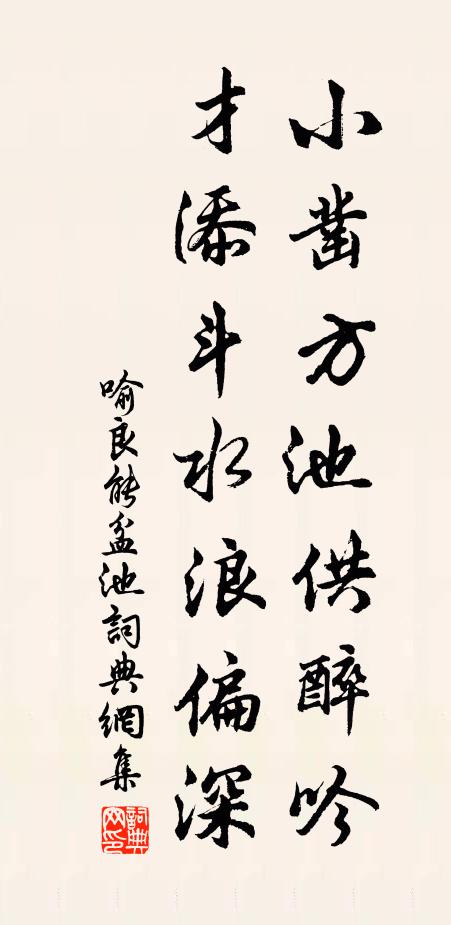 小鑿方池供醉吟
才添斗水浪偏深
喻良能盆池詞典網集
詞典網印